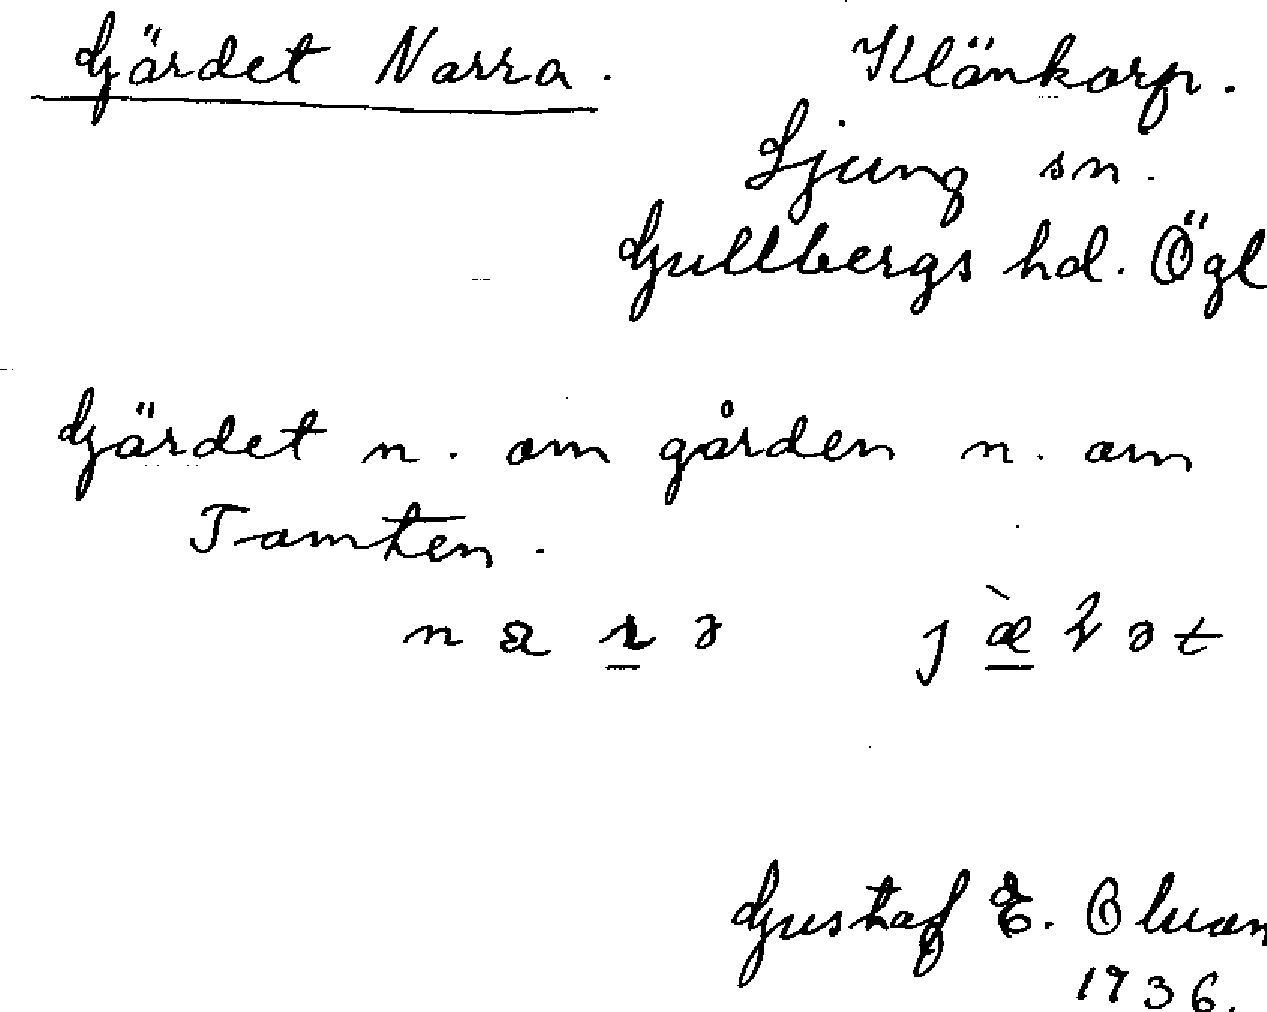 Gärdet Narra. Klänkorp.
Ljung sn.
Gullbergs hd. Ögl
Gärdet n. om gården n. om
Tomten.
Gustaf E.
1936.